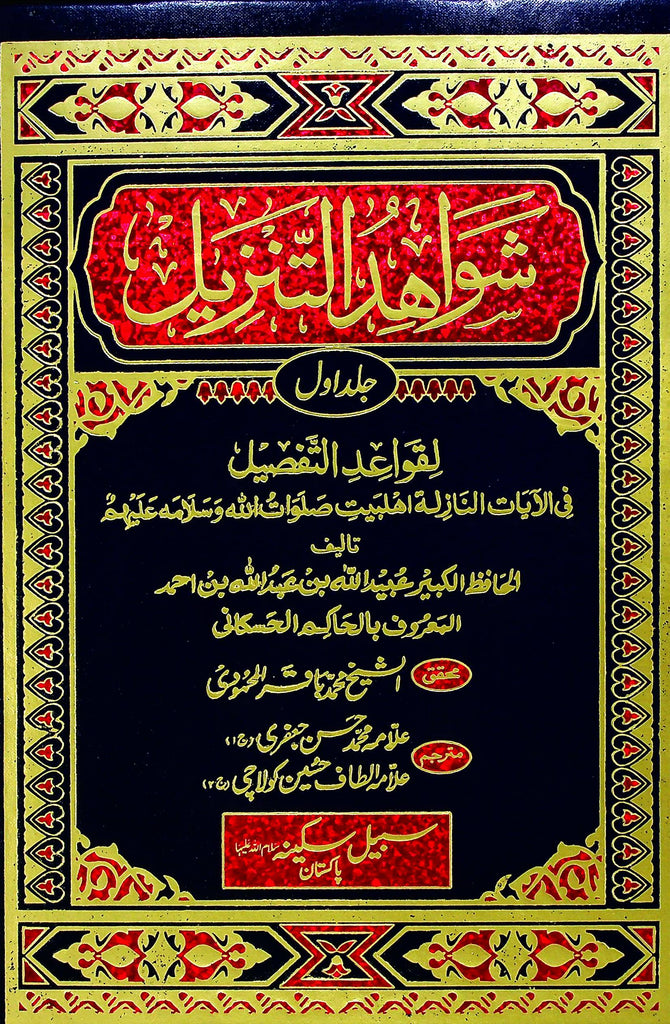 شَوَاهِدُ التَّنْزِيل
جلد اول
لِقَوَاعِدِ التَّفصِيْل
فِی الآیَات النَازِلة اهلبَیتِ صَلَوَاتُ الله وَسَلَامه عَلَیهِمْ
تالیف
الحَافظ الکبیر عُبیدالله بن عَبدالله بن احمد
المَعرُوف بالحَاکِم الحَسکانی
محقق الشیخ محمد باقر المحمودی
مترجم علامه محمد حسن جعفری (ج۱)
علامه الطاف حسین کولاچی (ج۲)
سبیل سکینه سلام الله علیها
پاکستان